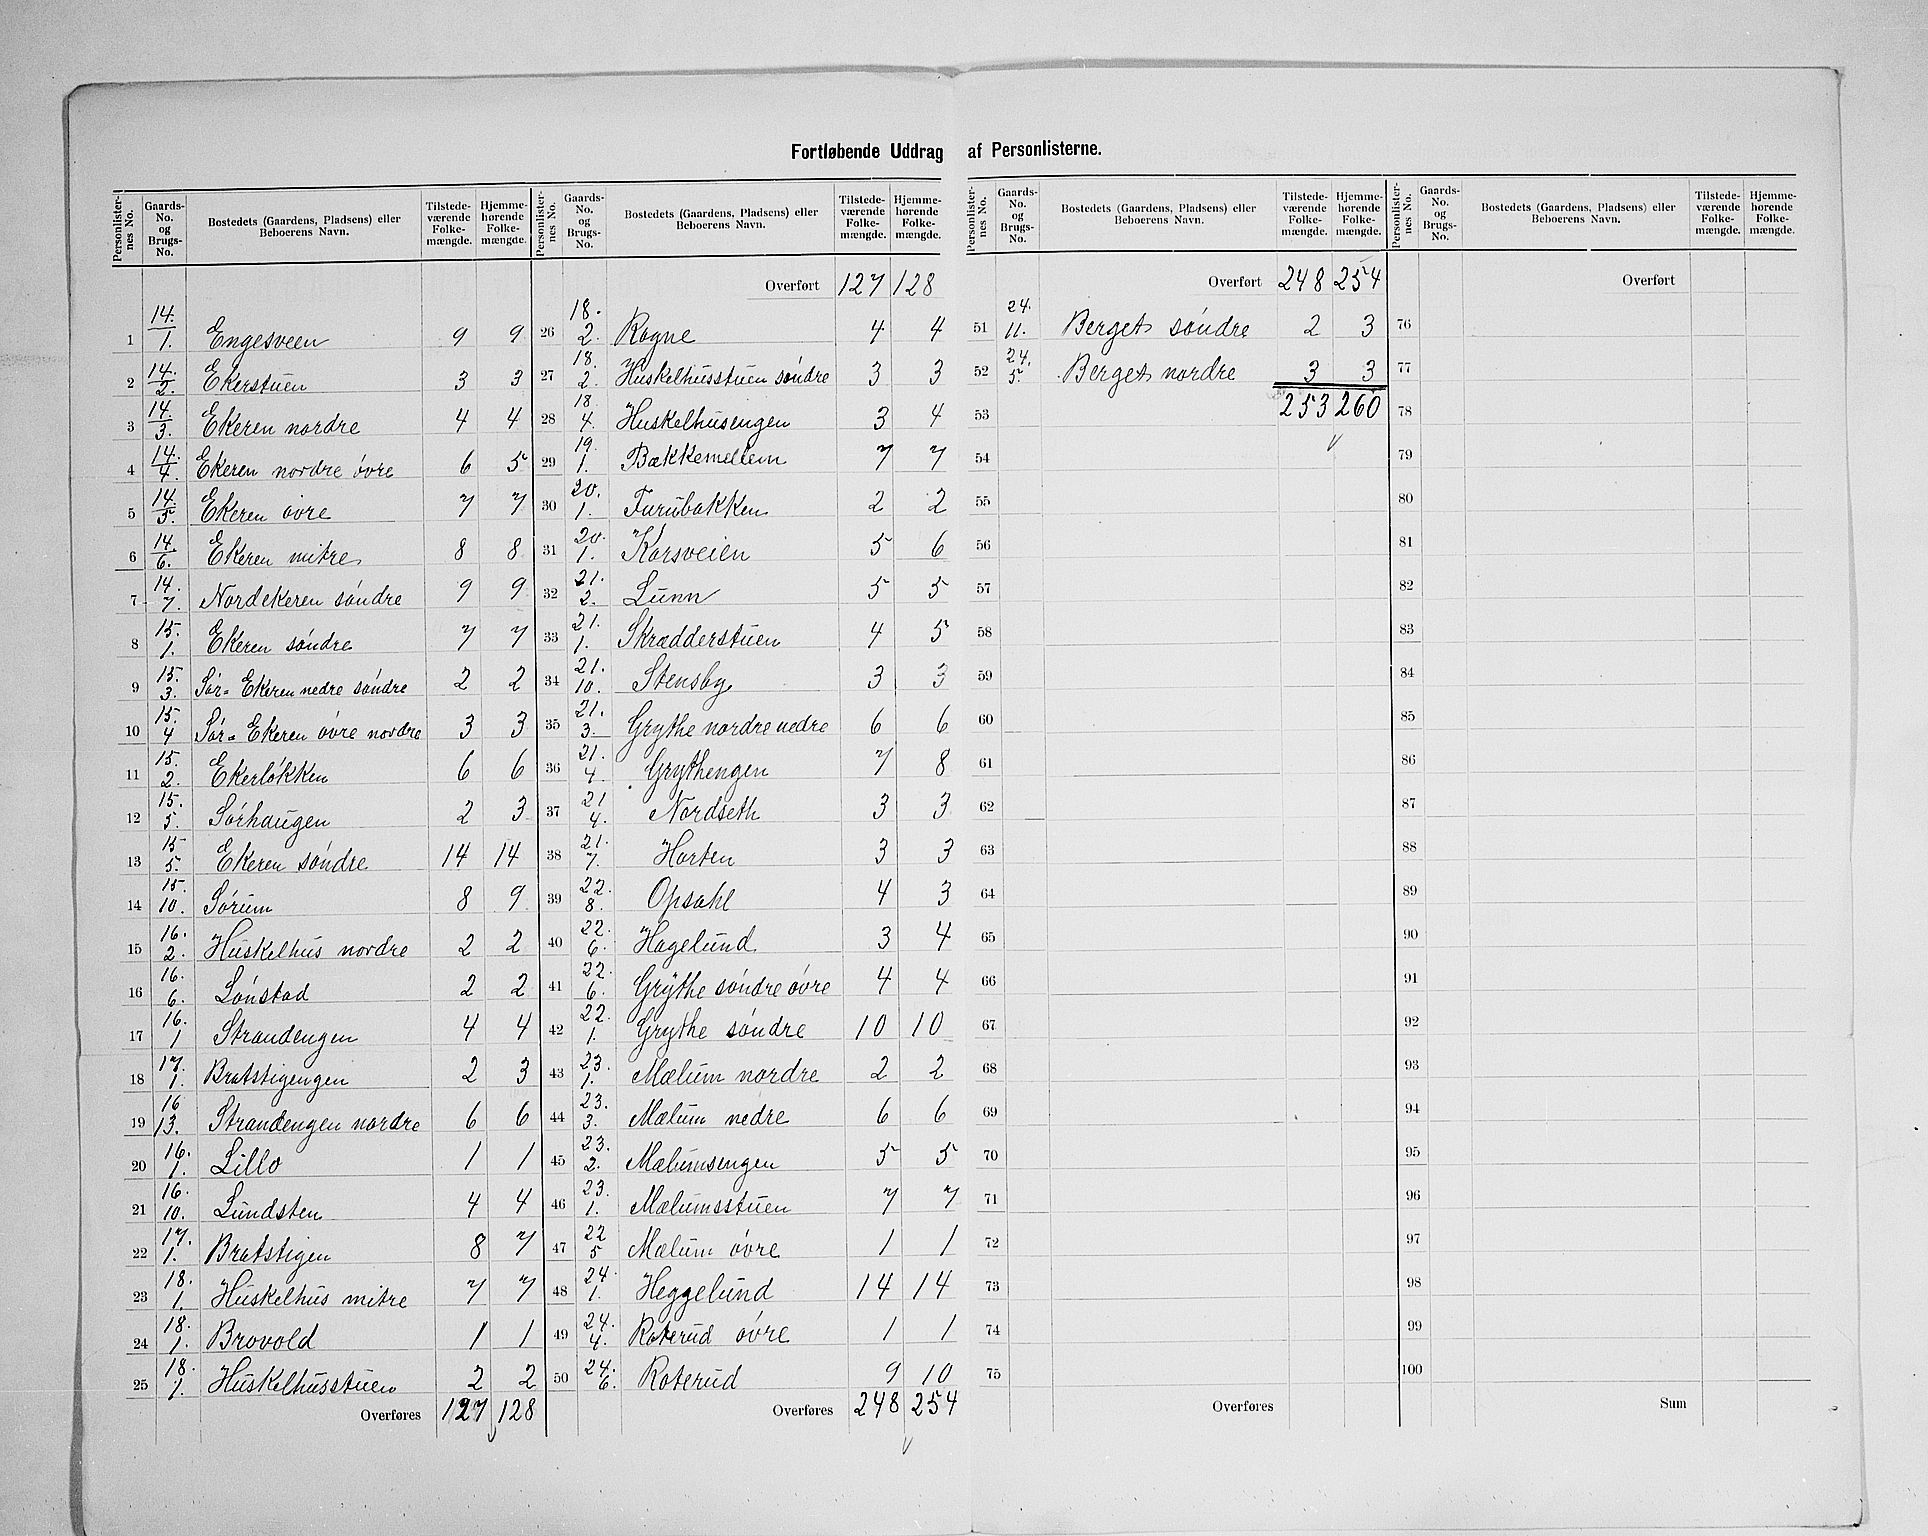 Fortløbende Uddrag af Personlisterne.
Personlister-nes No. | Gaards-No. og Brugs-No. | Bostedets (Gaardens, Pladsens) eller Beboerens Navn. | Tilstede-værende Folke-mængde. | Hjemme-hørende Folke-mængde.
1 14./1. Engesveen 9 9
2 14./2. Ekerstuen 3 3
3 14./3. Ekeren nordre 4 4
4 14./4. Ekeren nordre øvre 6 5
5 14./5. Ekeren øvre 7 7
6 14./6. Ekeren mitre 8 8
7 14./7. Nordekeren søndre 9 9
8 15./1. Ekeren søndre 7 7
9 15./3. Sør= Ekeren nedre søndre 2 2
10 15./4 Sør= Ekeren øvre nordre 3 3
11 15./2. Ekerløkken 6 6
12 15./5. Sørhaugen 2 3
13 15/5. Ekeren søndre 14 14
14 15./10. Sørum 8 9
15 16./2. Huskelhus nordre 2 2
16 16./6. Lønstad 2 2
17 16./1 Strandengen 4 4
18 17./1. Bratstigengen 2 3
19 16/13. Strandengen nordre 6 6
20 16./1. Lillo 1 1
21 16./10. Lundsten 4 4
22 17./1. Bratstigen 8 7
23 18./1. Huskelhus mitre 7 7
24 18./1. Brovold 1 1
25 18./1. Huskelhusstuen 2 2
Overføres 127 128
Personlister-nes No. | Gaards-No. og Brugs-No. | Bostedets (Gaardens, Pladsens) eller Beboerens Navn. | Tilstede-værende Folke-mængde. | Hjemme-hørende Folke-mængde.
Overført 127 128
26 18./2. Rogne 4 4
27 18./2. Huskelhusstuen søndre 3 3
28 18./4. Huskelhusengen 3 4
29 19./1. Bakkemellem 7 7
30 20./1. Furubakken 2 2
31 20./1. Korsveien 5 6
32 21./2. Lunn 5 5
33 21./1. Skrædderstuen 4 5
34 21./10. Stensby 3 3
35 21./3. Grythe nordre nedre 6 6
36 21./4 Grythengen 7 8
37 21/4. Nordseth 3 3
38 21./7. Horten 3 3
39 22./8. Opsahl 4 3
40 22./6. Hagelund 3 4
41 22./6. Grythe søndre øvre 4 4
42 22./1. Grythe søndre 10 10
43 23./1. Mælum nordre 2 2
44 23./3. Mælum nedre 6 6
45 23./2. Mælumsengen 5 5
46 23./1. Mælumsstuen 7 7
47 22/5 Mælum øvre 1 1
48 24./1. Heggelund 14 14
49 24./4. Roterud øvre 1 1
50 24./6. Roterud 9 10
Overføres 248 254
Personlister-nes No. | Gaards-No. og Brugs-No. | Bostedets (Gaardens, Pladsens) eller Beboerens Navn. | Tilstede-værende Folke-mængde. | Hjemme-hørende Folke-mængde.
Overført 248 254
51 24./11. Berget søndre 2 3
52 24./5. Berget nordre 3 3
53 253 260
54
55
56
57
58
59
60
61
62
63
64
65
66
67
68
69
70
71
72
73
74
75
Overføres
Personlister-nes No. | Gaards-No. og Brugs-No. | Bostedets (Gaardens, Pladsens) eller Beboerens Navn. | Tilstede-værende Folke-mængde. | Hjemme-hørende Folke-mængde.
Overført
76
77
78
79
80
81
82
83
84
85
86
87
88
89
90
91
92
93
94
95
96
97
98
99
100
Sum